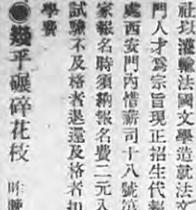 社以灌輸法國文學造就法文
門人才爲宗旨現正招生代報
處西安門內惜薪司十八號
家報名時須納報名費二元入
試驗不及格者退還及格者扣
學費
●幾乎碾碎花枝 昨晚